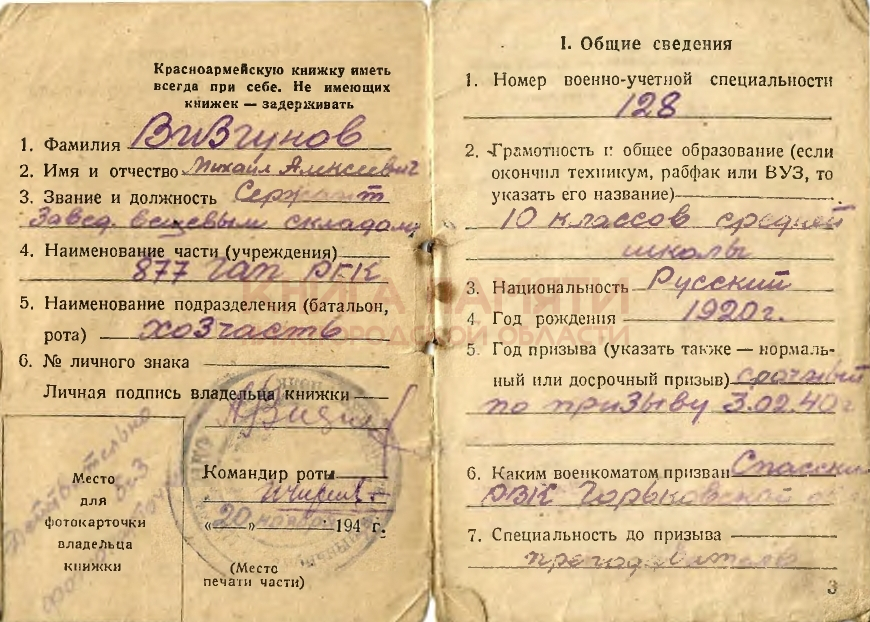 Красноармейскую книжку иметь
всегда при себе. Не имеющих
книжек — задерживать
1. Фамилия Визгунов
2. Имя и отчество Михаил Алексеевич
3. Звание и должность Сержант
Завед. вещевым складом
4. Наименование части (учреждения)
877 гап РГК
5. Наименование подразделения (батальон,
рота) хозчасть
6. № личного знака
Личная подпись владельца книжки
Командир роты
„20" ноября 194 г.
(Место
печати части)
Действительно
без
фотокарточки
Место
для
фотокарточки
владельца
книжки
I. Общие сведения
1. Номер военно-учетной специальности
128
2. Грамотность и общее образование (если
окончил техникум, рабфак или ВУЗ, то
указать его название)
10 классов средней
школы
3. Национальность Русский
4. Год рождения 1920 г.
5. Год призыва (указать также — нормаль-
ный или досрочный призыв) срочный
по призыву 3.02.40 г
6. Каким военкоматом призван Спасским
РВК Горьковской обл
7. Специальность до призыва
преподаватель
3
КНИГА ПАМЯТИ
НИЖЕГОРОДСКОЙ ОБЛАСТИ